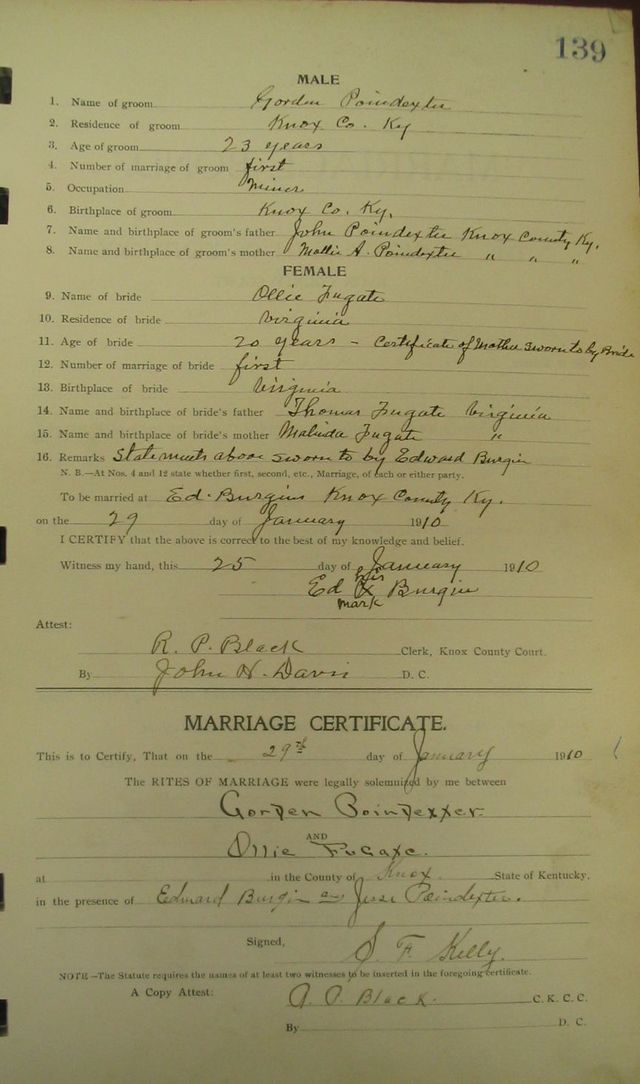 139
MALE
1. Name of groom Gorden Poindexter
2. Residence of groom Knox Co. Ky
3. Age of groom 23 years
4. Number of marriage of groom first
5. Occupation Miner
6. Birthplace of groom Knox Co. Ky.
7. Name and birthplace of groom's father John Poindexter Knox County Ky.
8. Name and birthplace of groom's mother Mollie A. Poindexter " " "
FEMALE
9. Name of bride Ollie Fugate
10. Residence of bride Virginia
11. Age of bride 20 years - Certificate of Mother sworn to by Bride
12. Number of marriage of bride first
13. Birthplace of bride Virginia
14. Name and birthplace of bride's father Thomas Fugate Virginia
15. Name and birthplace of bride's mother Malinda Fugate "
16. Remarks Statements above sworn to by Edward Burgin
N. B.—At Nos. 4 and 12 state whether first, second, etc., Marriage, of each or either party.
To be married at Ed. Burgins Knox County Ky.
on the 29 day of January 1910
I CERTIFY that the above is correct to the best of my knowledge and belief.
Witness my hand, this 25 day of January 1910
his
Ed X Burgin
mark
Attest:
R. P. Black Clerk, Knox County Court.
By John H. Davis D. C.
MARRIAGE CERTIFICATE.
This is to Certify, That on the 29th day of January 1910
The RITES OF MARRIAGE were legally solemnized by me between
Gorden Poindexter.
AND
Ollie Fugate.
at in the County of Knox State of Kentucky,
in the presence of Edward Burgin and Jesse Poindexter.
Signed, S. F. Kelly.
NOTE—The Statute requires the names of at least two witnesses to be inserted in the foregoing certificate.
A Copy Attest: R. P. Black. C. K. C. C.
By D. C.